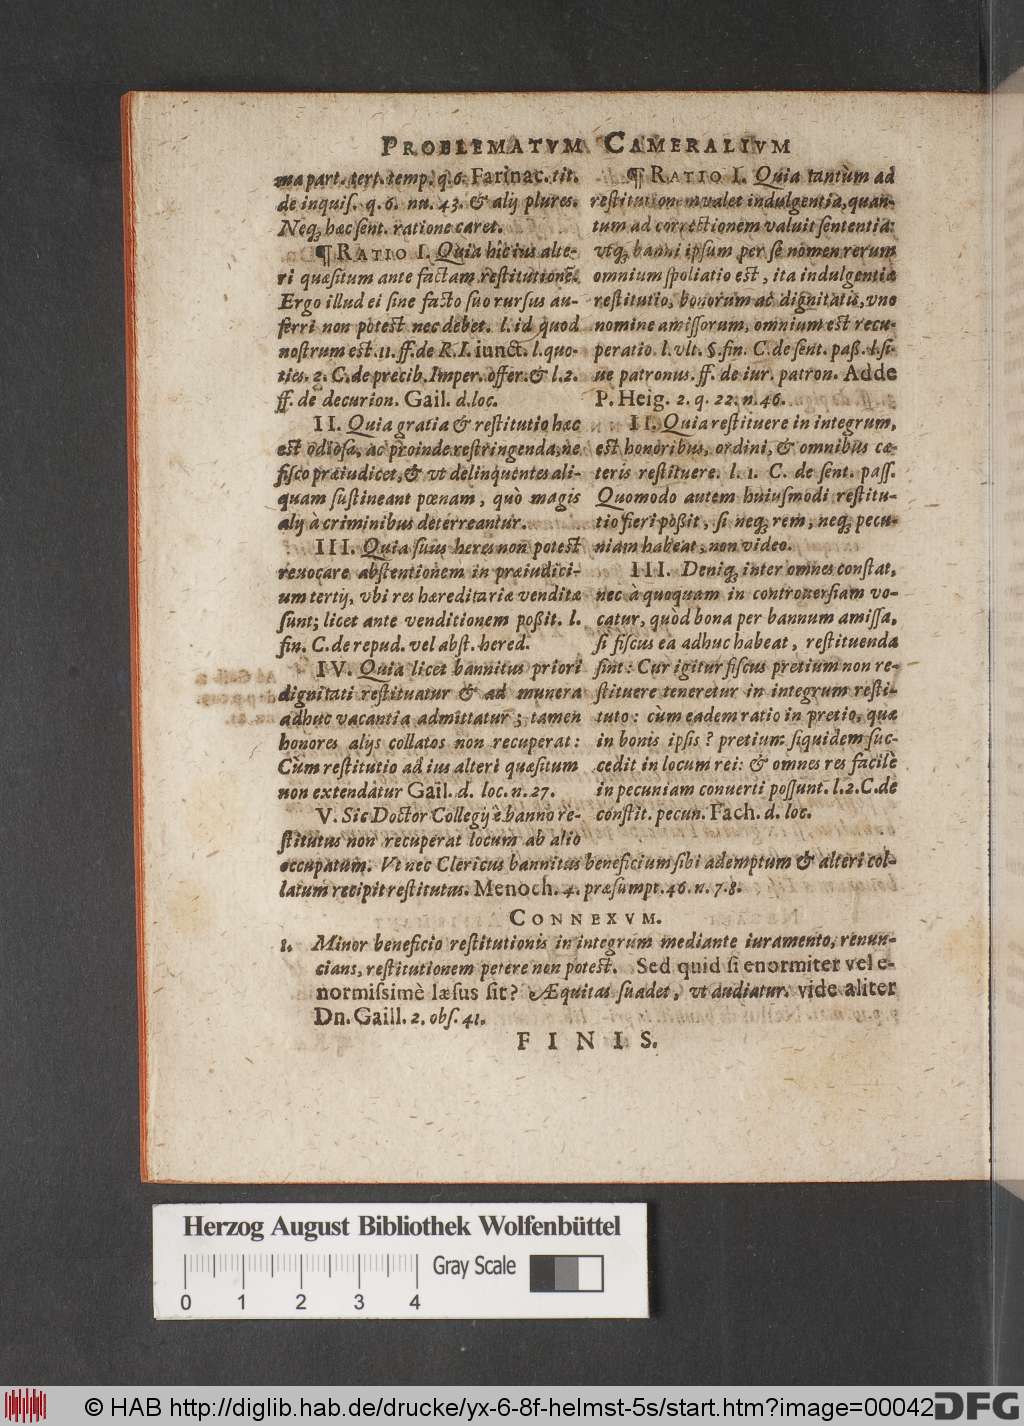 PROBLEMATVM CAMERALIVM
ma part. tert. temp. q. 6. Farinac. tit.
de inquis. q. 6. nu. 43. & alij plures.
Neq; hæc sent. ratione caret.
¶ RATIO I. Quia hic ius alte-
ri quæsitum ante factam restitutionē.
Ergo illud ei sine facto suo rursus au-
ferri non potest nec debet. l. id quod
nostrum est. 11. ff. de R. I. iunct. l. quo-
ties. 2. C. de precib. Imper. offer. & l. 2.
ff. de decurion. Gail. d. loc.
II. Quia gratia & restitutio hæc
est odiosa, ac proinde restringenda, ne
fisco præiudicet, & vt delinquentes ali-
quam sustineant pœnam, quò magis
alij à criminibus deterreantur.
III. Quia suus heres non potest
reuocare abstentionem in præiudici-
um tertij, vbi res hæreditariæ venditæ
sunt; licet ante venditionem poßit. l.
fin. C. de repud. vel abst. hered.
IV. Quia licet bannitus priori
dignitati restituatur & ad munera
adhuc vacantia admittatur; tamen
honores alijs collatos non recuperat:
Cùm restitutio ad ius alteri quæsitum
non extendatur Gail. d. loc. n. 27.
V. Sic Doctor Collegij è banno re-
stitutus non recuperat locum ab alio
occupatum. Vt nec Clericus bannitus beneficium sibi ademptum & alteri col-
latum recipit restitutus. Menoch. 4. præsumpt. 46. n. 7. 8.
¶ RATIO I. Quia tantùm ad
restitutionem valet indulgentia, quan-
tum ad correctionem valuit sententia:
vtq; banni ipsum per se nomen rerum
omnium spoliatio est, ita indulgentiæ
restitutio, bonorum ac dignitatū, vno
nomine amissorum, omnium est recu-
peratio. l. vlt. §. fin. C. de sent. paß. l. si-
ue patronus. ff. de iur. patron. Adde
P. Heig. 2. q. 22. n. 46.
II. Quia restituere in integrum,
est honoribus, ordini, & omnibus cæ-
teris restituere. l. 1. C. de sent. pass.
Quomodo autem huiusmodi restitu-
tio fieri poßit, si neq; rem, neq; pecu-
niam habeat, non video.
III. Deniq; inter omnes constat,
nec à quoquam in controuersiam vo-
catur, quòd bona per bannum amissa,
si fiscus ea adhuc habeat, restituenda
sint: Cur igitur fiscus pretium non re-
stituere teneretur in integrum resti-
tuto: cùm eadem ratio in pretio, quæ
in bonis ipsis? pretium siquidem suc-
cedit in locum rei: & omnes res facilè
in pecuniam conuerti possunt. l. 2. C. de
constit. pecun. Fach. d. loc.
CONNEXVM.
1. Minor beneficio restitutionis in integrum mediante iuramento, renun-
cians, restitutionem petere non potest. Sed quid si enormiter vel e-
normissimè læsus sit? Æquitas suadet, vt audiatur. vide aliter
Dn. Gaill. 2. obs. 41.
FINIS.
Herzog August Bibliothek Wolfenbüttel
Gray Scale
0 1 2 3 4
© HAB http://diglib.hab.de/drucke/yx-6-8f-helmst-5s/start.htm?image=00042
DFG